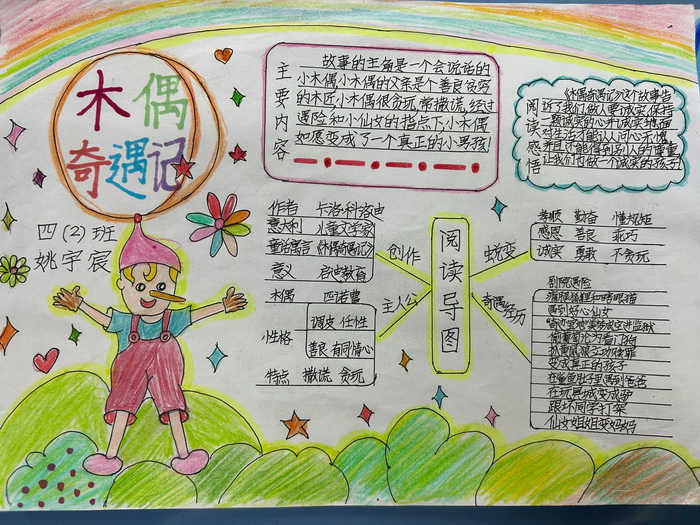 木偶
奇遇记
四(2)班
姚宇宸
主要内容
故事的主角是一个会说话的
小木偶,小木偶的父亲是个善良贫穷
的木匠,小木偶很贪玩,常撒谎,经过
遇险和小仙女的指点下,小木偶
如愿变成了一个真正的小男孩!
阅读感悟
《木偶奇遇记》这个故事告
诉了我们做人要诚实,保持
一颗诚实的心并诚实地面
对生活才能让人问心不愧
并且还能得到别人的尊重
让我们也做一个诚实的孩子
作者 卡洛·科洛迪
意大利 儿童文学家
童话寓言《木偶奇遇记》
意义 启迪教育
创作
木偶 匹诺曹
主人公
小性格
调皮 任性
善良 有同情心
特点 撒谎 贪玩
阅读导图
蜕变
孝顺 勤奋 懂规矩
感恩 善良 乖巧
诚实 勇敢 不贪玩
奇遇经历
剧院遇险
瘸腿狐狸和瞎眼猫
遇到好心仙女
偷葡萄沦为看门狗
变成真正的孩子
在鲨鱼肚子里遇到爸爸
在玩具城变成驴
跟坏同学打架
仙女姐姐变妈妈